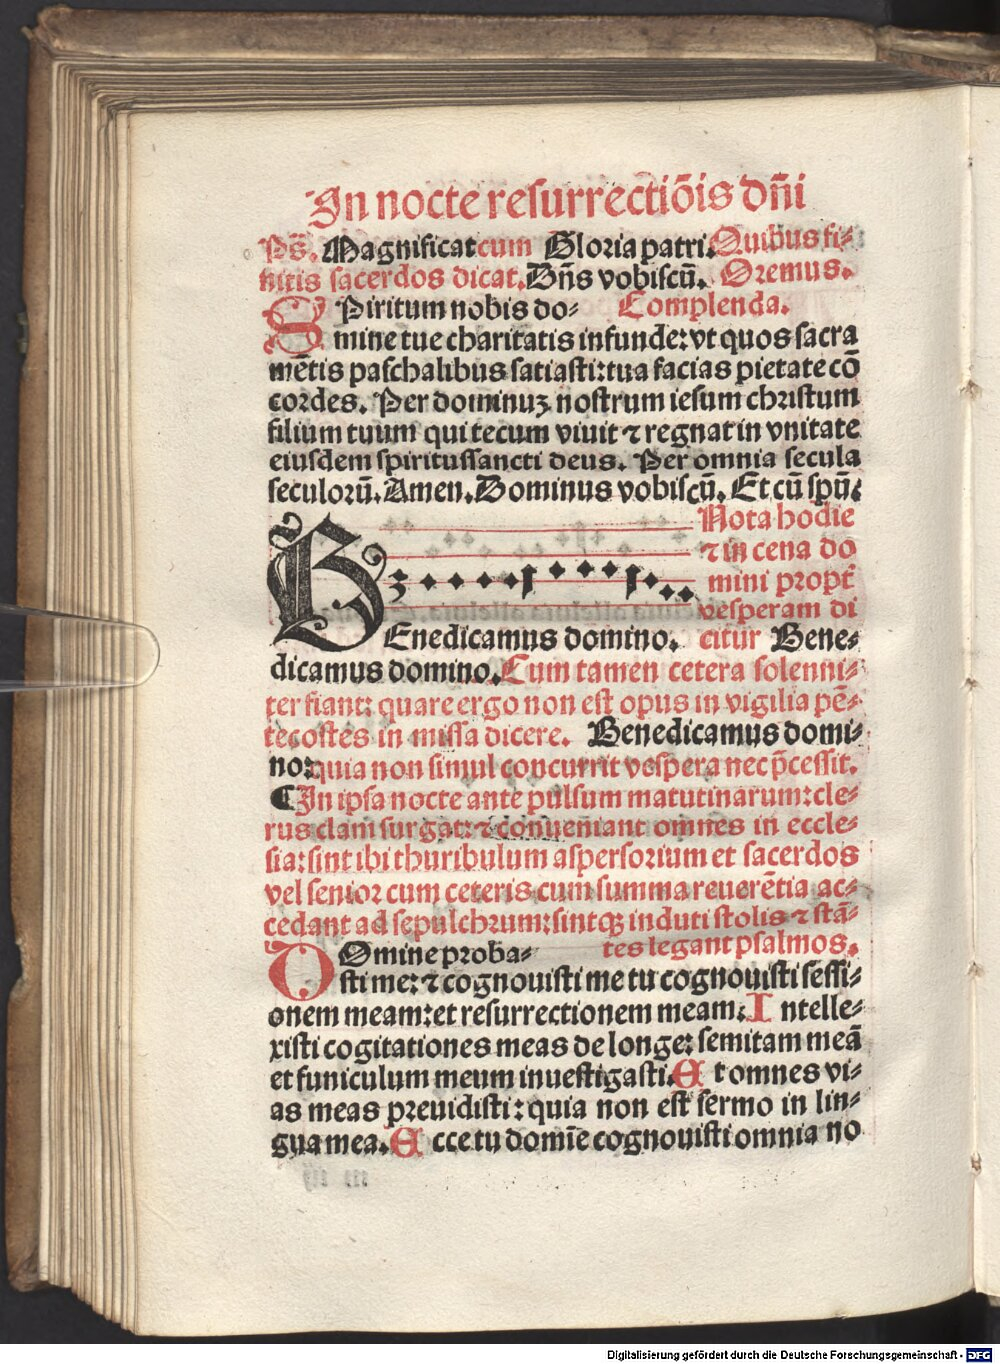 In nocte resurrectiōis dn̄i
Ps̄. Magnificat cum Gloria patri. Quibus fi-
nitis sacerdos dicat. Dn̄s vobiscū. Oremus.
SPiritum nobis do- Complenda.
mine tue charitatis infunde: vt quos sacra
mētis paschalibus satiasti: tua facias pietate cō
cordes. Per dominuꝫ nostrum iesum christum
filium tuum qui tecum viuit ⁊ regnat in vnitate
eiusdem spiritussancti deus. Per omnia secula
seculorū. Amen. Dominus vobiscū. Et cū spū:
Nota hodie
⁊ in cena do
mini propt̄
vesperam di
BEnedicamus domino. citur Bene-
dicamus domino. Cum tamen cetera solenni-
ter fiant: quare ergo non est opus in vigilia pē-
tecostes in missa dicere. Benedicamus domi-
no: quia non simul concurrit vespera nec p̄cessit.
¶ In ipsa nocte ante pulsum matutinarum: cle-
rus clam surgat: ⁊ conueniant omnes in eccle-
sia: sint ibi thuribulum aspersorium et sacerdos
vel senior cum ceteris cum summa reuerētia ac-
cedant ad sepulchrum: sintqꝫ induti stolis ⁊ stā-
DOmine proba- tes legant psalmos.
sti me: ⁊ cognouisti me tu cognouisti sessi-
onem meam: et resurrectionem meam. Intelle-
xisti cogitationes meas de longe: semitam meā
et funiculum meum inuestigasti. Et omnes vi-
as meas preuidisti: quia non est sermo in lin-
gua mea. Ecce tu domīe cognouisti omnia no
Digitalisierung gefördert durch die Deutsche Forschungsgemeinschaft - DFG